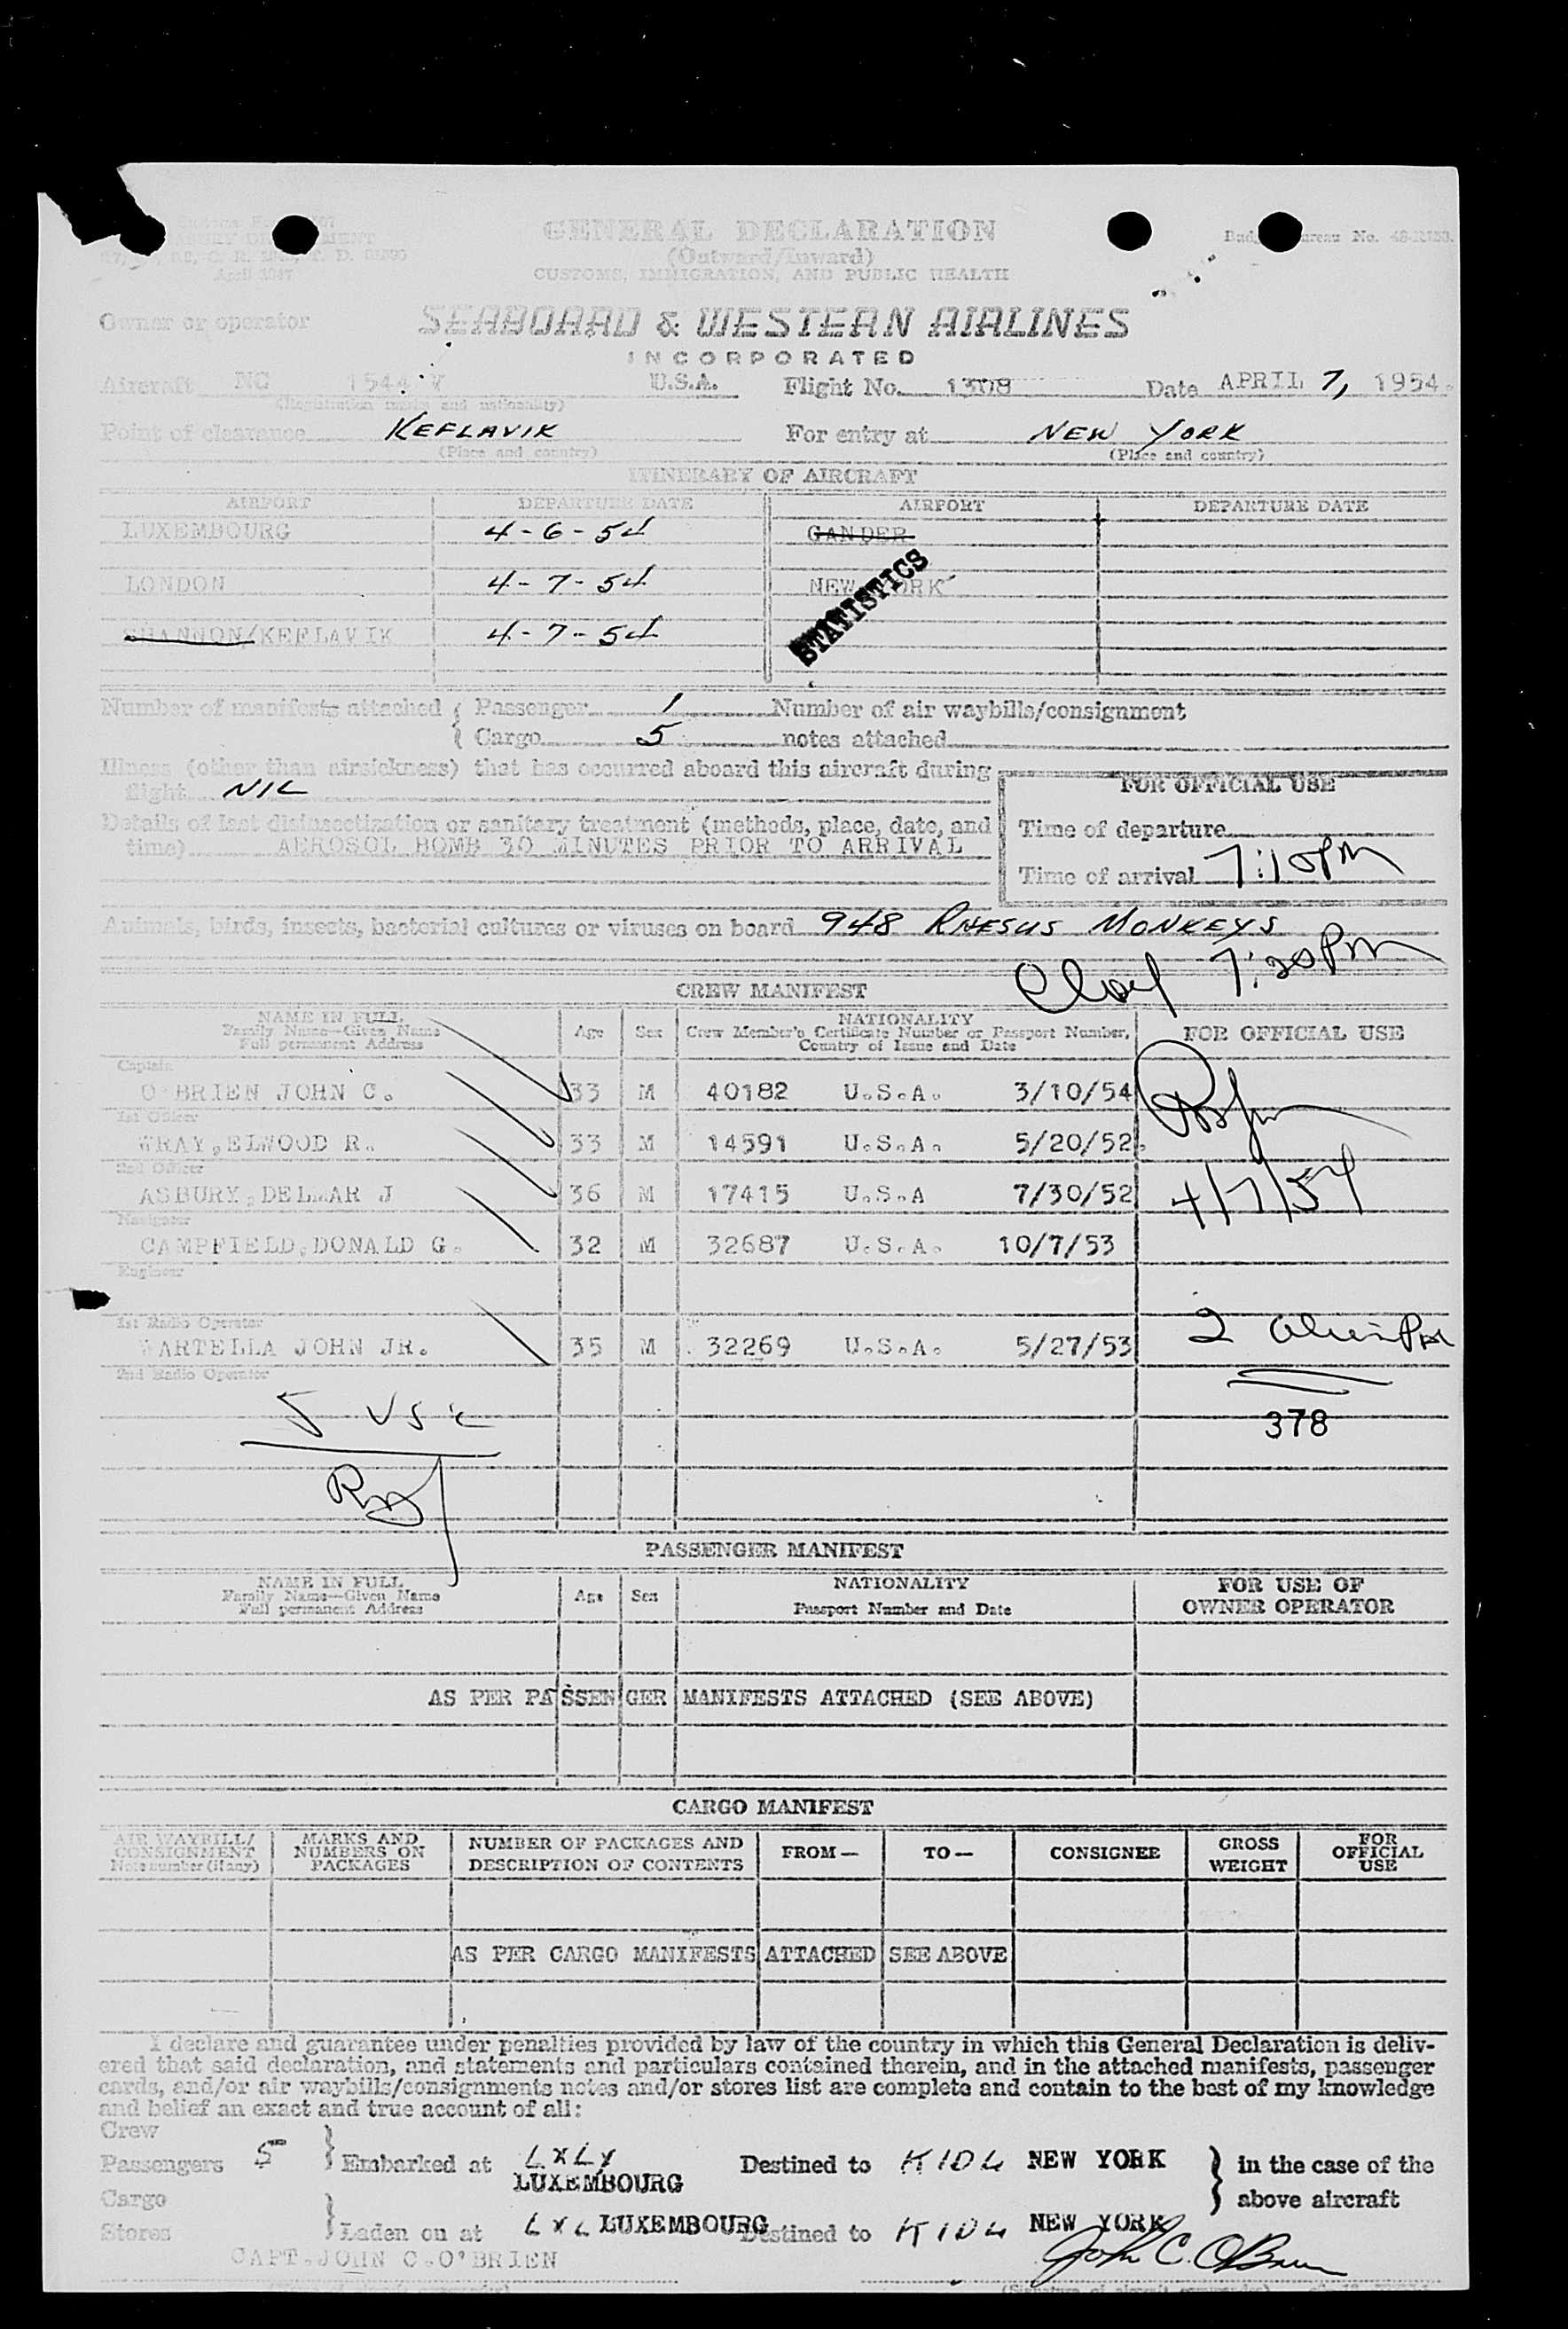 GENERAL DECLARATION
(Outward/Inward)
CUSTOMS, IMMIGRATION, AND PUBLIC HEALTH
April 1947
Owner or operator SEABOARD & WESTERN AIRLINES
INCORPORATED
Aircraft NC 1544 V U.S.A. Flight No. 1308 Date APRIL 7, 1954.
(Registration marks and nationality)
Point of clearance KEFLAVIK For entry at NEW YORK
(Place and country) (Place and country)
ITINERARY OF AIRCRAFT
AIRPORT DEPARTURE DATE AIRPORT DEPARTURE DATE
LUXEMBOURG 4-6-54 GANDER
LONDON 4-7-54 NEW YORK
STATISTICS
SHANNON/KEFLAVIK 4-7-54
Number of manifests attached { Passenger 1 Number of air waybills/consignment
Cargo 5 notes attached
Illness (other than airsickness) that has occurred aboard this aircraft during
flight NIL
FOR OFFICIAL USE
Details of last disinsectization or sanitary treatment (methods, place, date, and
time) AEROSOL BOMB 30 MINUTES PRIOR TO ARRIVAL
Time of departure
Time of arrival 7:10PM
Animals, birds, insects, bacterial cultures or viruses on board 948 RHESUS MONKEYS
7:20PM
CREW MANIFEST
NAME IN FULL
Family Name—Given Name
Full permanent Address
Age Sex
NATIONALITY
Crew Member's Certificate Number or Passport Number,
Country of Issue and Date
FOR OFFICIAL USE
Captain
O'BRIEN JOHN C. 33 M 40182 U.S.A. 3/10/54
1st Officer
WRAY,ELWOOD R. 33 M 14591 U.S.A. 5/20/52.
2nd Officer
ASBURY,DELMAR J 36 M 17415 U.S.A 7/30/52
4/7/54
Navigator
CAMPFIELD,DONALD G. 32 M 32687 U.S.A. 10/7/53
Engineer
1st Radio Operator
WARTELLA JOHN JR. 35 M 32269 U.S.A. 5/27/53
2
2nd Radio Operator
378
5 USC
PASSENGER MANIFEST
NAME IN FULL
Family Name—Given Name
Full permanent Address
Age Sex
NATIONALITY
Passport Number and Date
FOR USE OF
OWNER OPERATOR
AS PER PASSENGER MANIFESTS ATTACHED (SEE ABOVE)
CARGO MANIFEST
AIR WAYBILL/
CONSIGNMENT
Note number (if any)
MARKS AND
NUMBERS ON
PACKAGES
NUMBER OF PACKAGES AND
DESCRIPTION OF CONTENTS
FROM— TO— CONSIGNEE
GROSS
WEIGHT
FOR
OFFICIAL
USE
AS PER CARGO MANIFESTS ATTACHED SEE ABOVE
I declare and guarantee under penalties provided by law of the country in which this General Declaration is deliv-
ered that said declaration, and statements and particulars contained therein, and in the attached manifests, passenger
cards, and/or air waybills/consignments notes and/or stores list are complete and contain to the best of my knowledge
and belief an exact and true account of all:
Crew
Passengers 5 } Embarked at LXLX LUXEMBOURG Destined to KIDL NEW YORK } in the case of the
Cargo above aircraft
Stores } Laden on at LXL LUXEMBOURG Destined to KIDL NEW YORK
CAPT.JOHN C.O'BRIEN John C. O'Brien